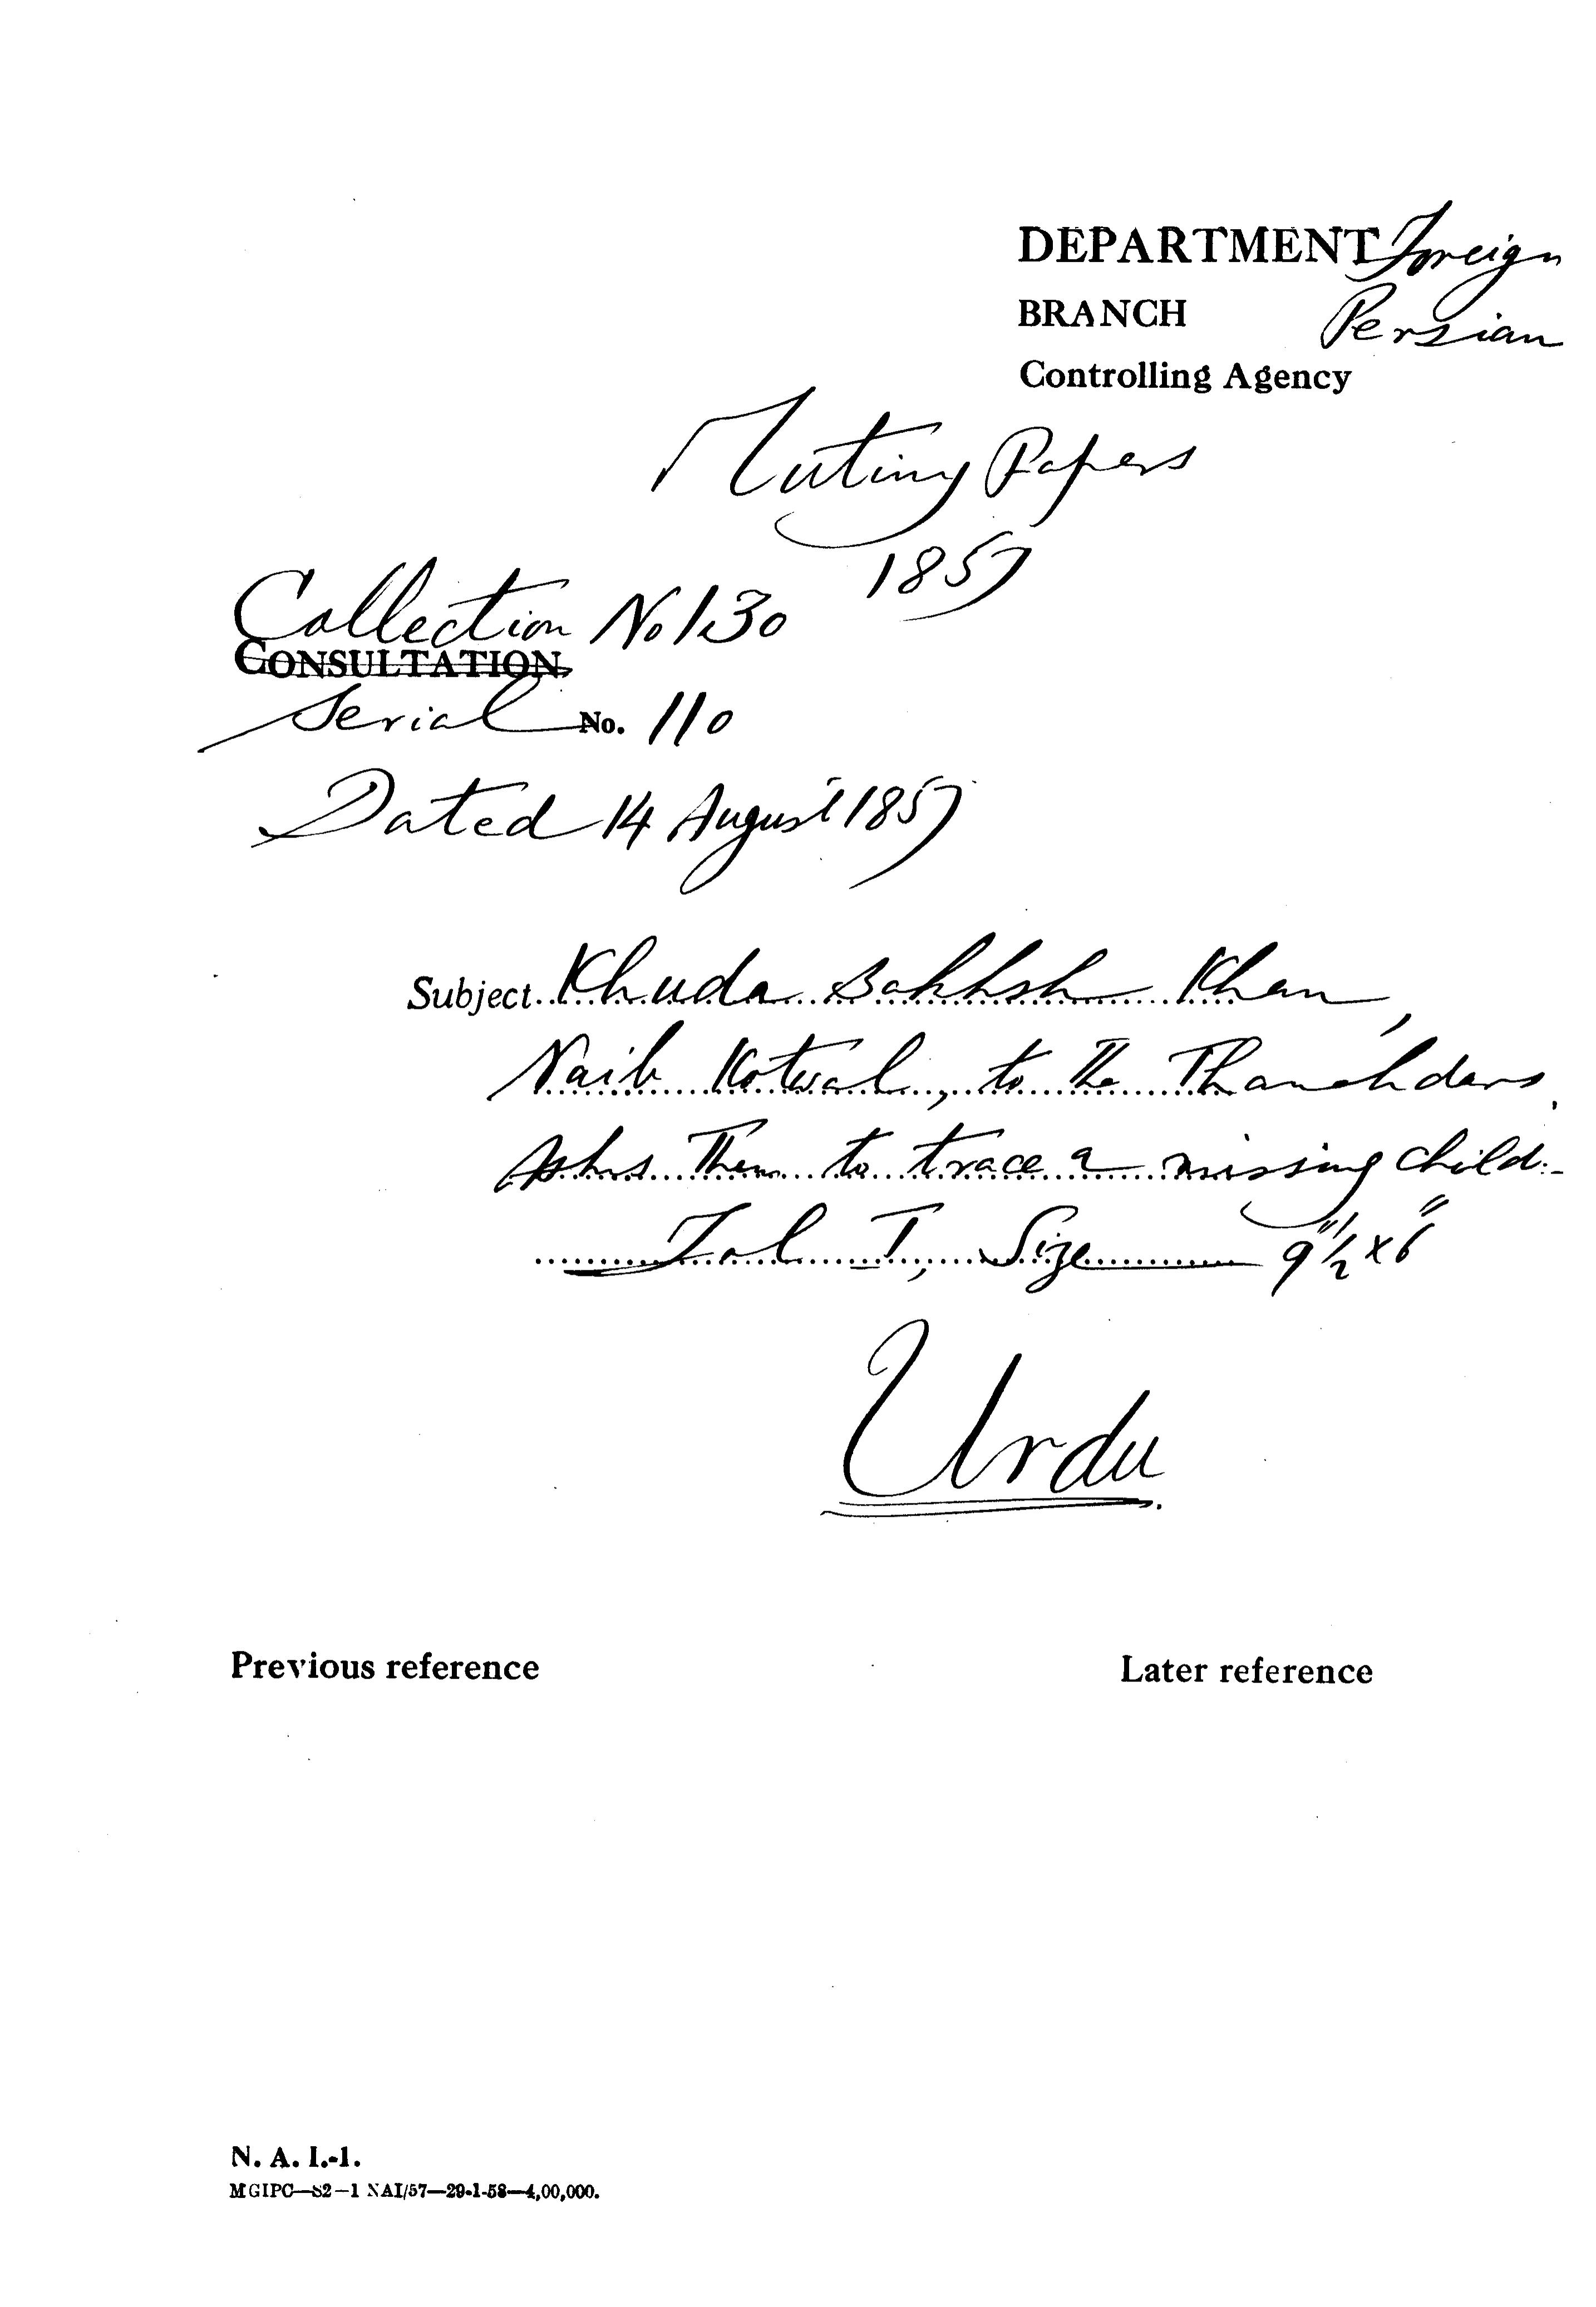 DEPARTMENT Foreign
BRANCH Persian
Controlling Agency
Mutiny Papers
1857
Collection No 130
CONSULTATION
Serial No. 110
Dated 14 August 1857
Subject Khuda Bakhsh Khan,
Naib Kotwal, to the Thanehdars.
Asks them to trace a missing child.-
Fol I, Size 9"1/2 x 6"
Urdu.
Previous reference
Later reference
N. A. I.-1.
MGIPC—S2—1 NAI/57—29-1-58—4,00,000.